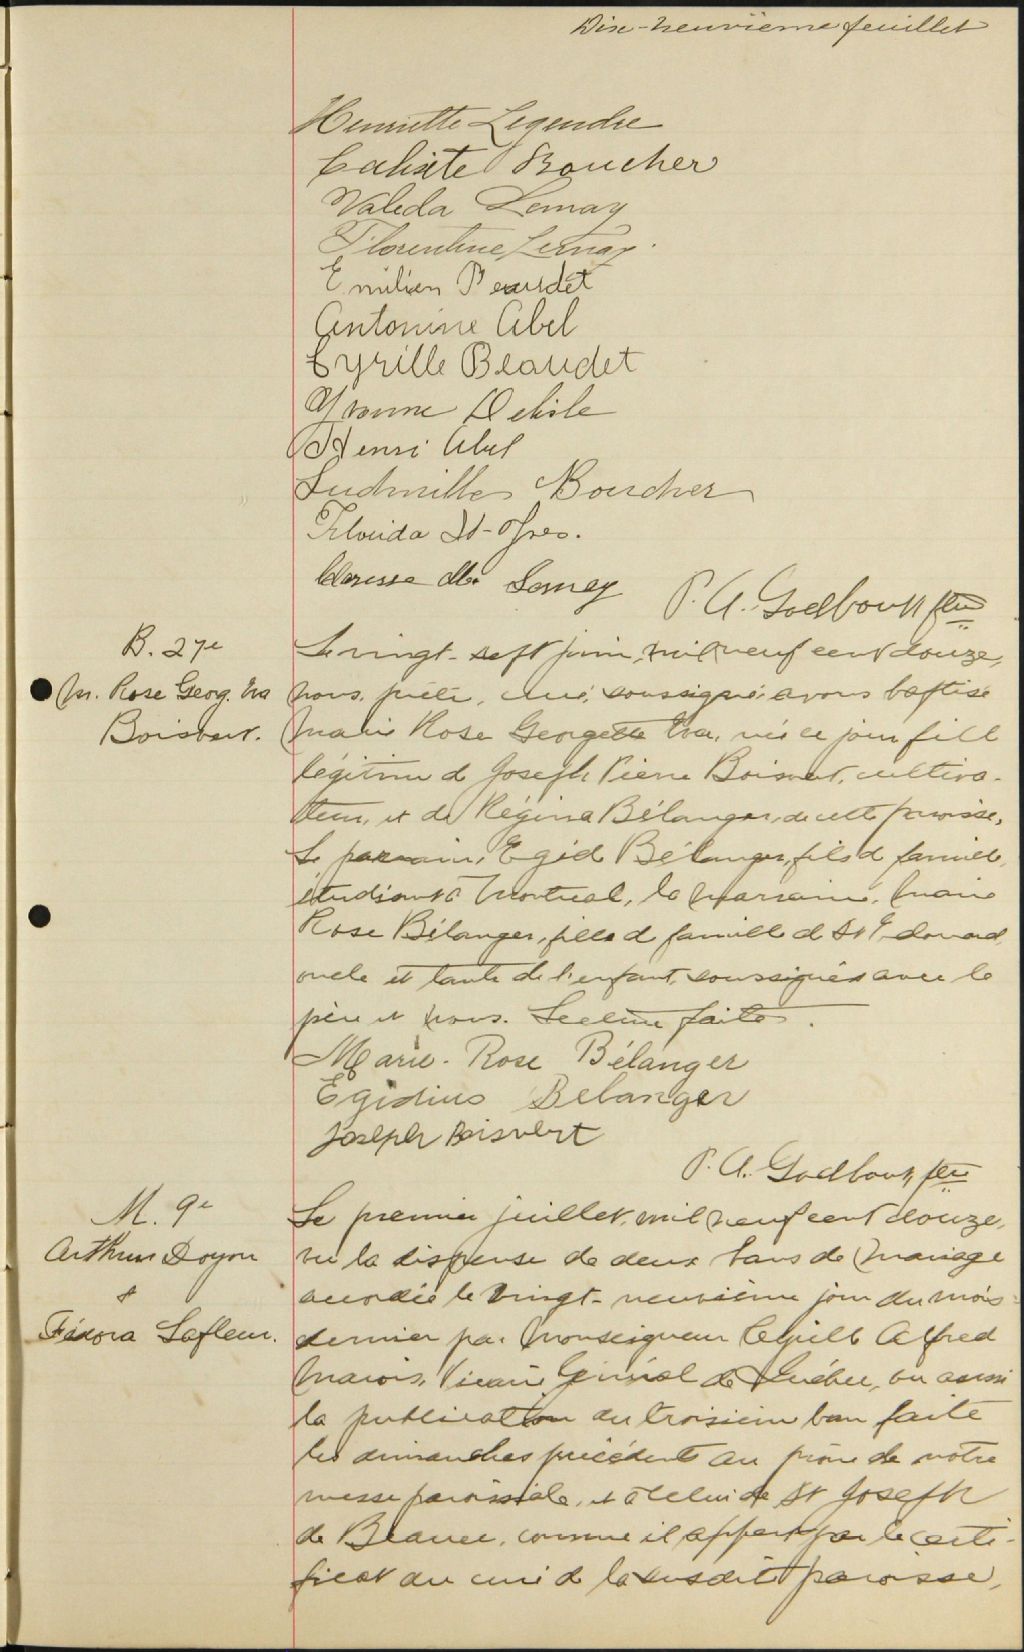 Dix-neuvième feuillet
Henriette Legendre
Calixte Boucher
Valeda Lemay
Florentine Lemay.
Emilien Beaudet
Antonine Abel
Cyrille Beaudet
Yvonne Delisle
Henri Abel
Ludmilla Boucher
Florida St-
Clarisse Lemay
P. A. Godbout ptre
B. 27e
M. Rose Georg. Eva
Boisvert.
Le vingt-sept juin, mil neuf cent douze,
nous, prêtre, curé, soussigné, avons baptisé
Marie Rose Georgette Eva, née ce jour fille
légitime de Joseph Pierre Boisvert, cultiva-
teur, et de Régina Bélanger, de cette paroisse.
Le parrain, Egide Bélanger, fils de famille,
étudiant à Montréal, la marraine, Marie
Rose Bélanger, fille de famille de St Edouard,
oncle et tante de l'enfant, soussignés avec le
père et nous. Lecture faite.
Marie-Rose Bélanger
Egidius Belanger
Joseph Boisvert
P. A. Godbout, ptre
M. 9e
Arthur Doyon
&
Fédora Lafleur.
Le premier juillet, mil neuf cent douze,
vu la dispense de deux bans de mariage
accordée le vingt-neuvième jour du mois
dernier par Monseigneur Cyrille Alfred
Marois, Vicaire Général de Québec, vu aussi
la publication du troisième ban faite
les dimanches précédents au prône de notre
messe paroissiale, et à celui de St Joseph
de Beauce, comme il appert par le certi-
ficat du curé de la susdite paroisse,